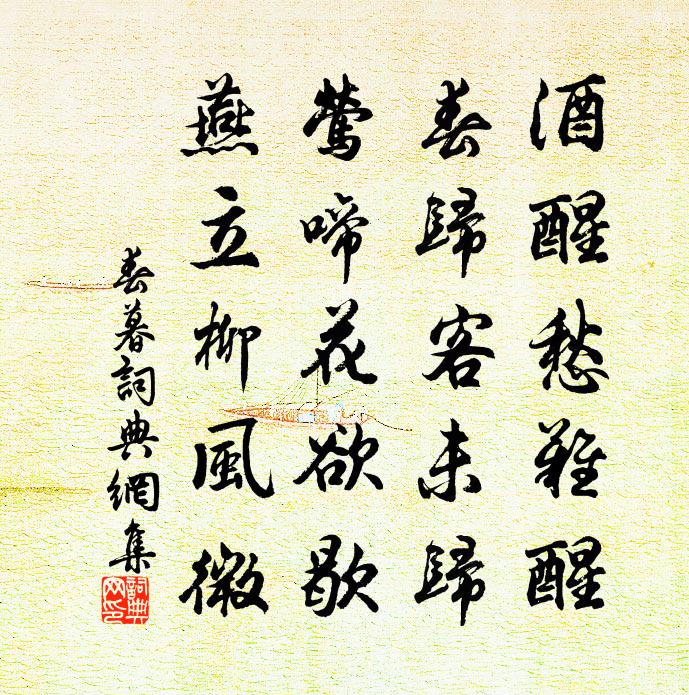 酒醒愁難醒
春歸客未歸
鶯啼花欲歇
燕立柳風微
春暮詞典網集
詞典
網印